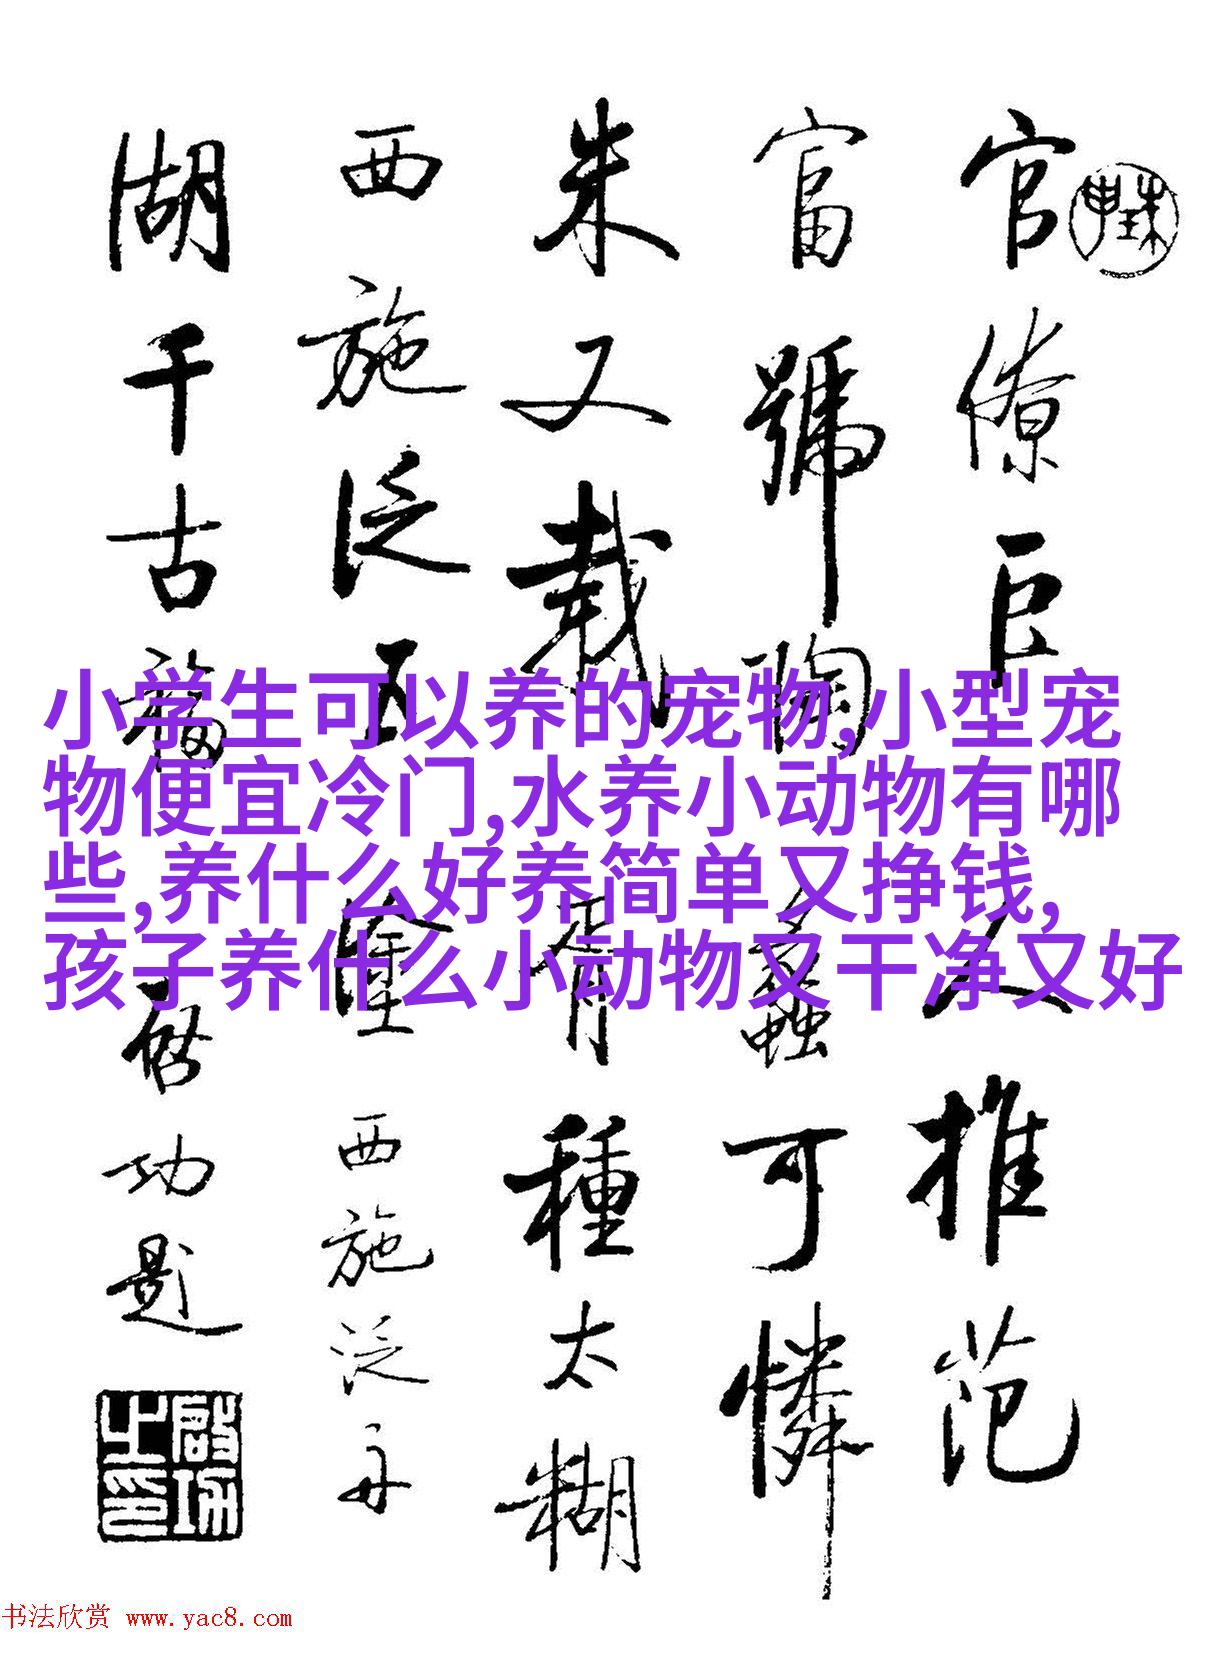 官僚巨人推范
富號陶朱可憐
朱又載胥種太糊
西施泛五
湖千古
西施泛舟
启功题
小学生可以养的宠物,小型宠
物便宜冷门,水养小动物有哪
些,养什么好养简单又挣钱,
孩子养什么小动物又干净又好
书法欣赏 www.yac8.com